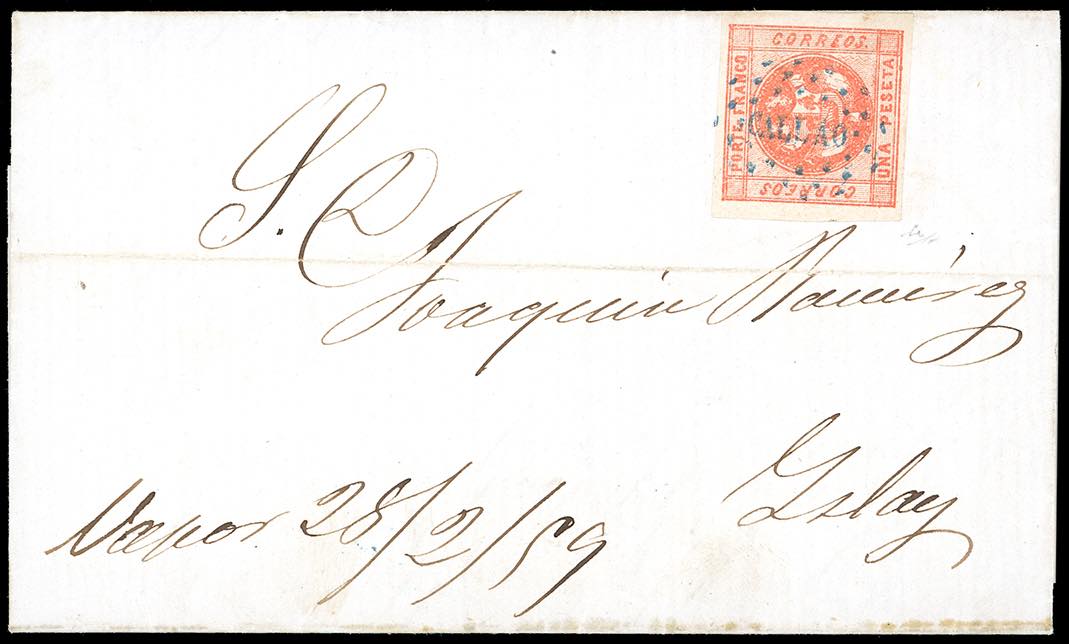 CORREOS.
PORTE FRANCO
UNA PESETA
CALLAO
CORREOS
S. D.
Joaquin Ramírez
Yslay
Vapor 28/2/59